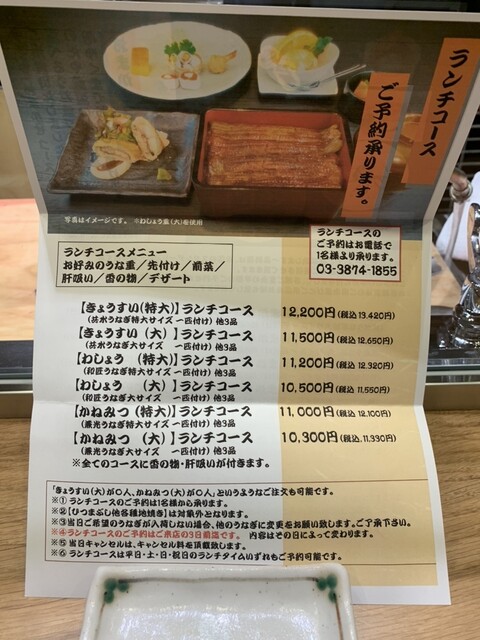 ランチコース
ご予約承ります。
写真はイメージです。 ※わしょう重(大)を使用
ランチコースの
ご予約はお電話で
1名様より承ります。
03-3874-1855
ランチコースメニュー
お好みのうな重／先付け／前菜／
肝吸い／香の物／デザート
【きょうすい(特大)】ランチコース 12,200円(税込 13,420円)
(共水うなぎ特大サイズ 一匹付け) 他3品
【きょうすい (大) 】ランチコース 11,500円(税込 12,650円)
(共水うなぎ大サイズ 一匹付け) 他3品
【わしょう (特大)】ランチコース 11,200円(税込 12,320円)
(和匠うなぎ特大サイズ 一匹付け) 他3品
【わしょう (大) 】ランチコース 10,500円(税込 11,550円)
(和匠うなぎ大サイズ 一匹付け) 他3品
【かねみつ (特大)】ランチコース 11,000円(税込 12,100円)
(兼光うなぎ特大サイズ 一匹付け) 他3品
【かねみつ (大) 】ランチコース 10,300円(税込 11,330円)
(兼光うなぎ大サイズ 一匹付け) 他3品
※全てのコースに香の物・肝吸いが付きます。
「きょうすい(大)が〇人、かねみつ(大)が〇人」というようなご注文も可能です。
※① ランチコースのご予約は1名様から承ります。
※②【ひつまぶし他各種地焼き】は対象外となります。
※③ 当日ご希望のうなぎが入荷しない場合、他のうなぎに変更をお願い致します。ご了承下さい。
※④ ランチコースのご予約はご来店の3日前迄です。 内容はその日によって変わります。
※⑤ 当日キャンセルは、キャンセル料を頂戴致します。
※⑥ ランチコースは平日・土・日・祝日のランチタイムいずれもご予約可能です。